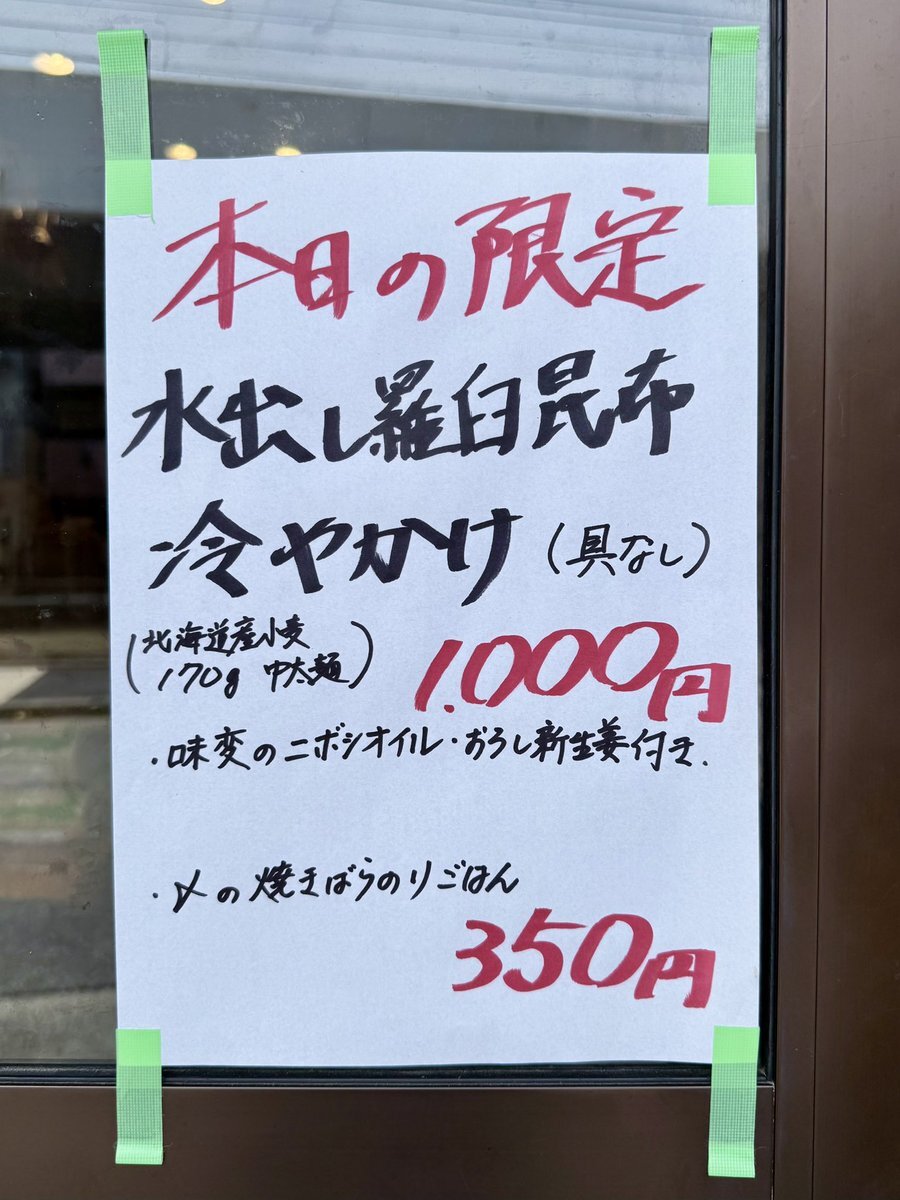 本日の限定
水出し羅臼昆布
冷やかけ(具なし)
(北海道産小麦
170g 中太麺)
1.000円
・味変のニボシオイル・おろし新生姜付き.
・〆の焼きばらのりごはん
350円